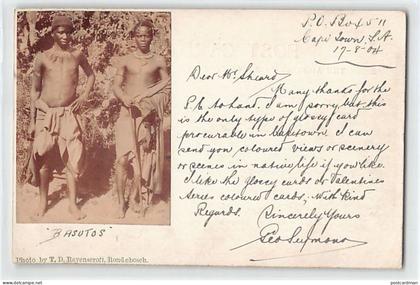 P.O. Box 511
Cape Town, S.A.
17-8-04
Dear Mr Sheard
Many thanks for the
P.C to hand. I am sorry but this
is the only type of glossy card
procurable in Capetown. I can
send you, coloured views or scenery
or scenes in native life if you like.
I like the glossy cards or Valentines
series coloured cards, with Kind
Regards. Sincerely Yours
Geo Seymons
"BASUTOS"
Photo by T. D. Ravenscroft, Rondebosch.